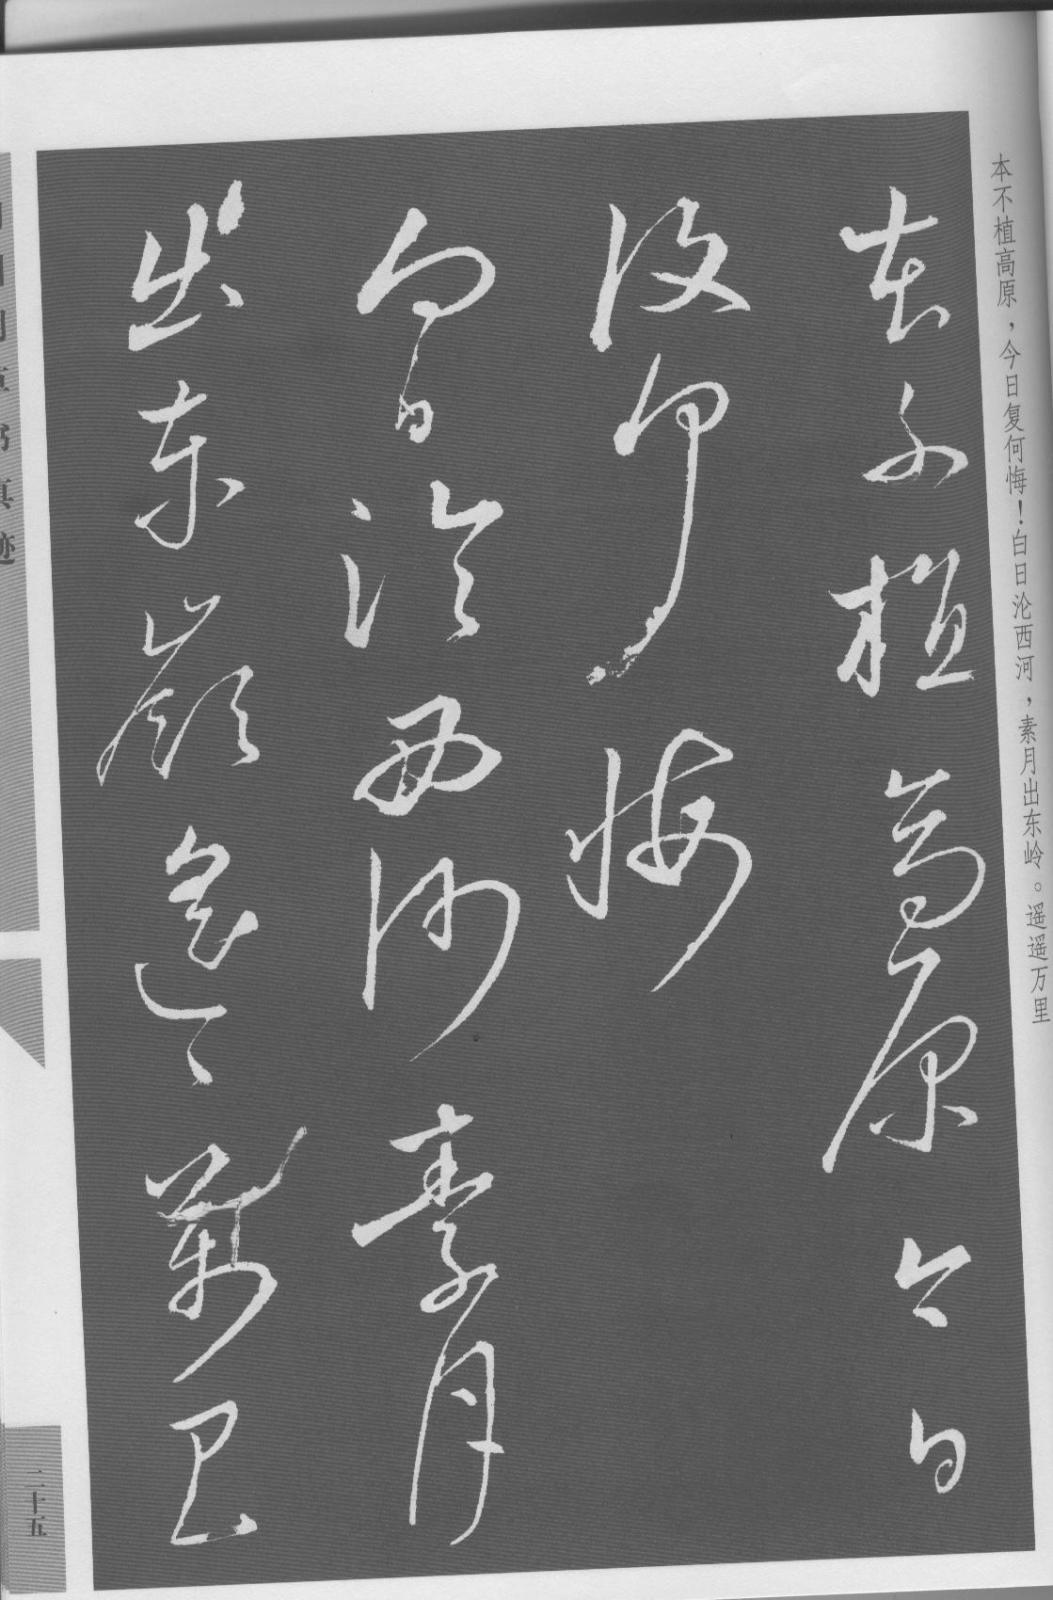 本不植高原，今日复何悔！白日沦西河，素月出东岭。遥遥万里
本不植高原今日
復何悔
白日淪西河素月
出東嶺遥〻萬里
草书真迹
二十五